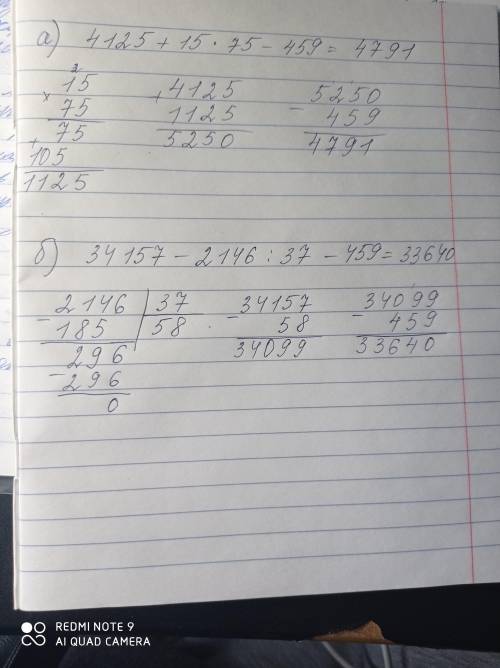 а) 4125 + 15 · 75 - 459 = 4791
2
× 15
75
75
+ 105
1125
+ 4125
1125
5250
- 5250
459
4791
б) 34157 - 2146 : 37 - 459 = 33640
- 2146 | 37
185 | 58
- 296
296
0
- 34157
58
34099
- 34099
459
33640
REDMI NOTE 9
AI QUAD CAMERA